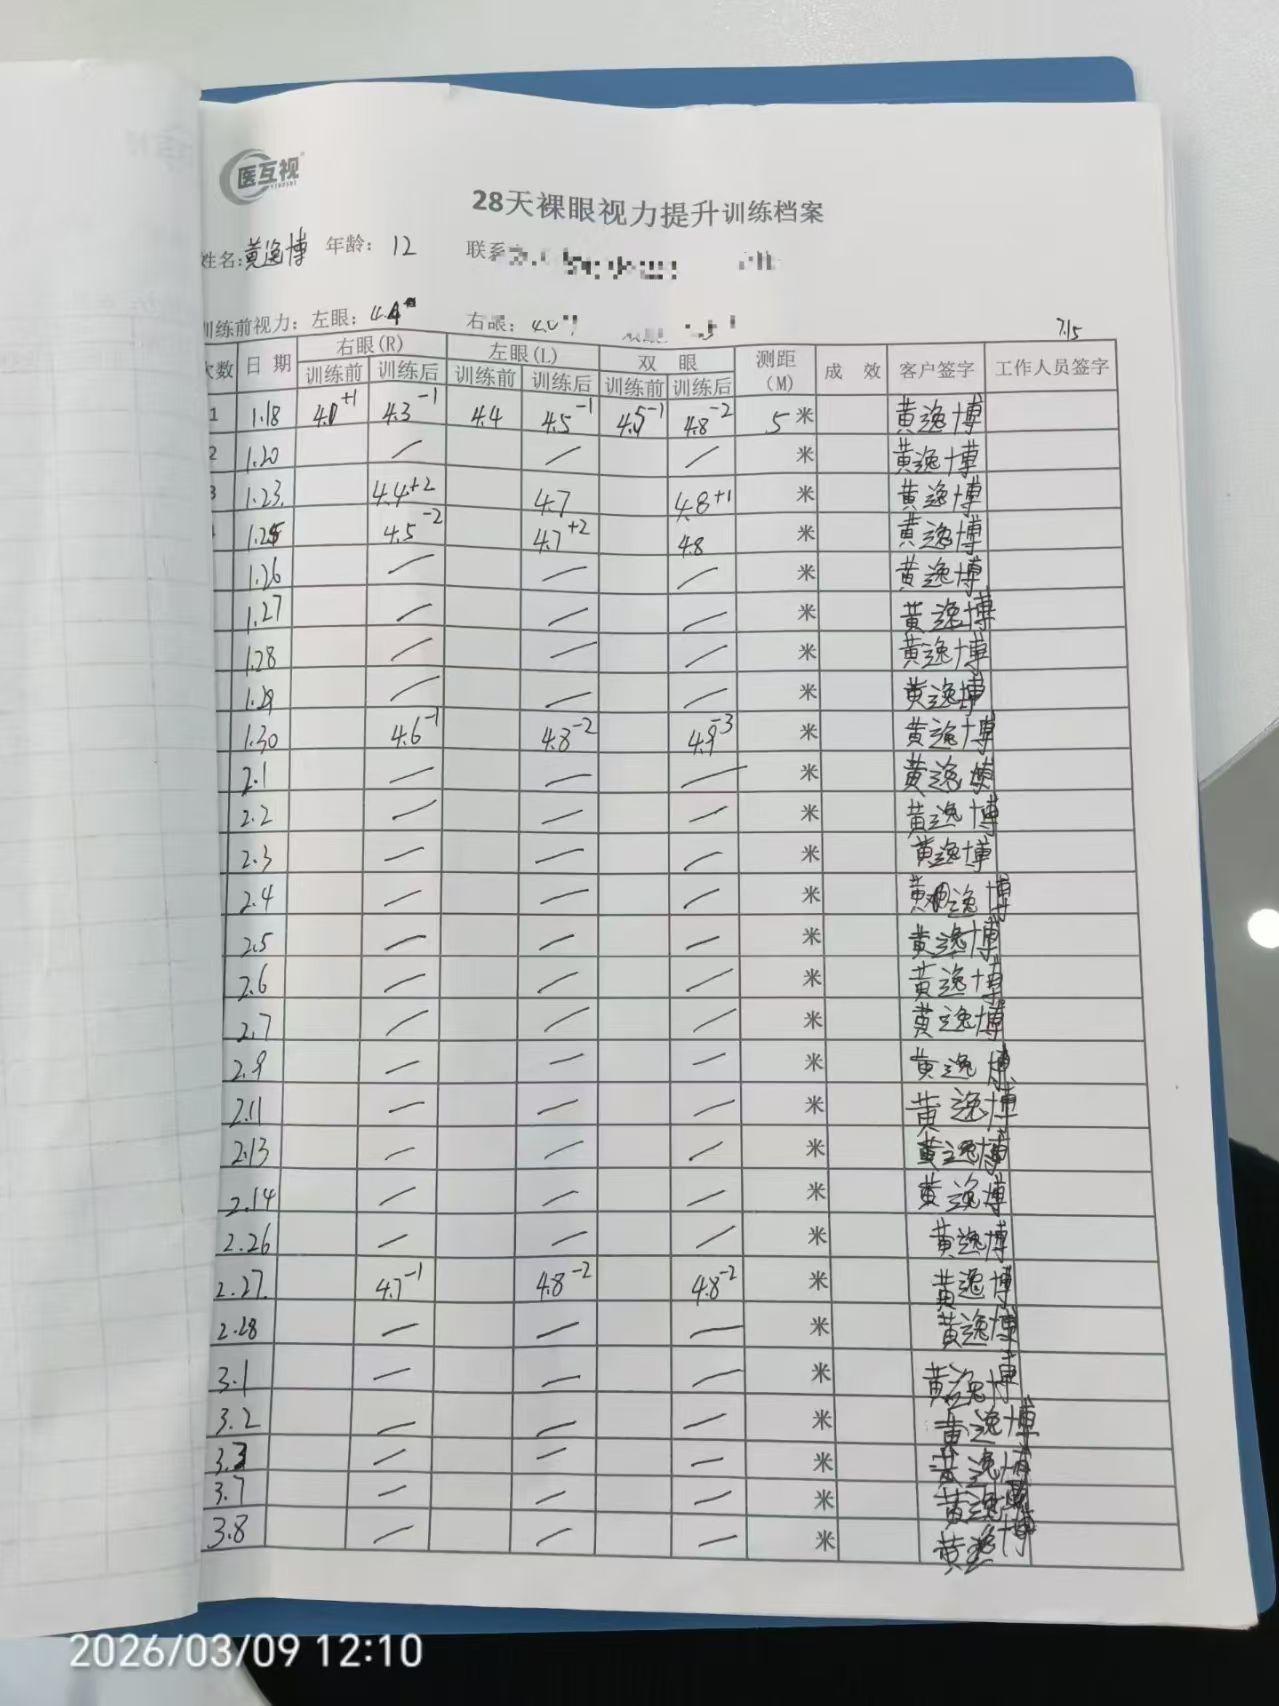 医互视
28天裸眼视力提升训练档案
姓名:黄逸博 年龄: 12 联系
训练前视力: 左眼: 4.4 右眼: 4.0
7.15
次数 日期 右眼(R) 左眼(L) 双眼 测距(M) 成效 客户签字 工作人员签字
训练前 训练后 训练前 训练后 训练前 训练后
1 1.18 4.0+1 4.3-1 4.4 4.5-1 4.5-1 4.8-2 5米 黄逸博
2 1.20 / / / 米 黄逸博
3 1.23. 4.4+2 4.7 4.8+1 米 黄逸博
1.25 4.5-2 4.7+2 4.8 米 黄逸博
1.26 / / / 米 黄逸博
1.27 / / / 米 黄逸博
1.28 / / / 米 黄逸博
1.29 / / / 米 黄逸博
1.30 4.6-1 4.8-2 4.9-3 米 黄逸博
2.1 / / / 米 黄逸博
2.2 / / / 米 黄逸博
2.3 / / / 米 黄逸博
2.4 / / / 米 黄逸博
2.5 / / / 米 黄逸博
2.6 / / / 米 黄逸博
2.7 / / / 米 黄逸博
2.9 / / / 米 黄逸博
2.11 / / / 米 黄逸博
2.13 / / / 米 黄逸博
2.14 / / / 米 黄逸博
2.26 / / / 米 黄逸博
2.27. 4.7-1 4.8-2 4.8-2 米 黄逸博
2.28 / / / 米 黄逸博
3.1 / / / 米 黄逸博
3.2 / / / 米 黄逸博
3.3 / / / 米 黄逸博
3.7 / / / 米 黄逸博
3.8 / / / 米 黄逸博
2026/03/09 12:10